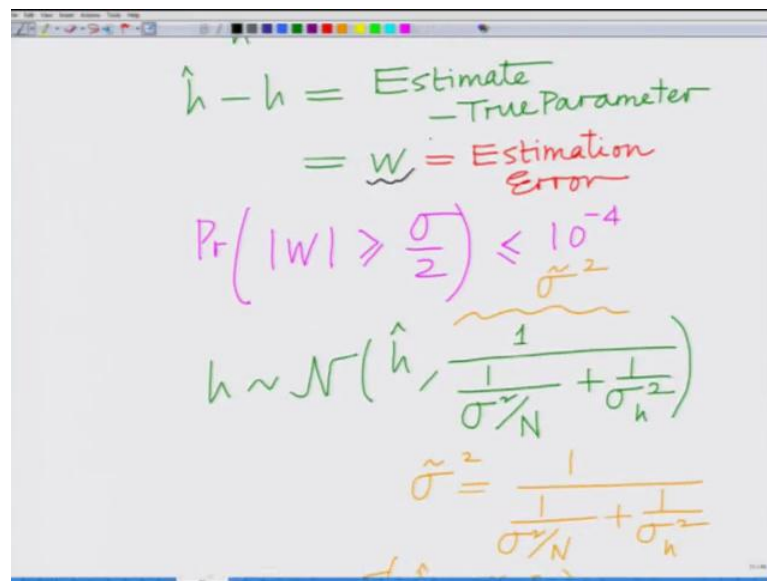 ĥ − h = Estimate
− True Parameter
= W = Estimation
Error
Pr( |W| ⩾ σ/2 ) ⩽ 10⁻⁴
σ̃²
h ~ N( ĥ, 1 / ( 1/(σ²/N) + 1/σₕ² ) )
σ̃² = 1 / ( 1/(σ²/N) + 1/σₕ² )